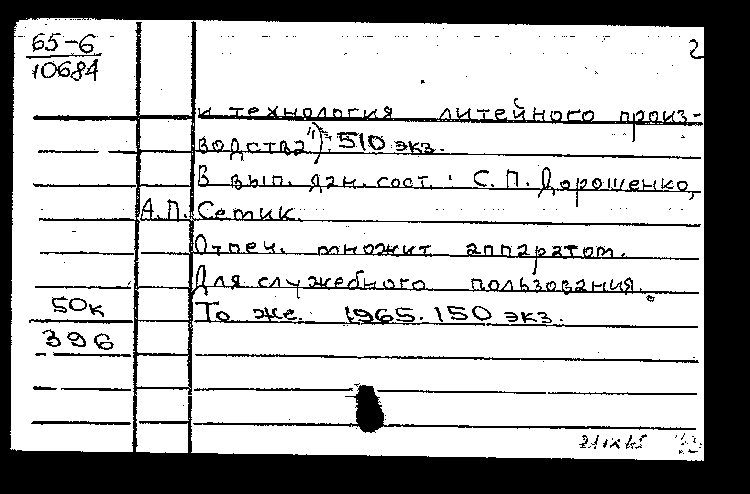 65-6
10684
2
и технология литейного произ-
водства"). 510 экз.
В вып. дан. сост.: С. П. Дорошенко,
А.П. Сетик.
Отпеч. множит. аппаратом.
Для служебного пользования.
50к То же. 1965. 150 экз.
396